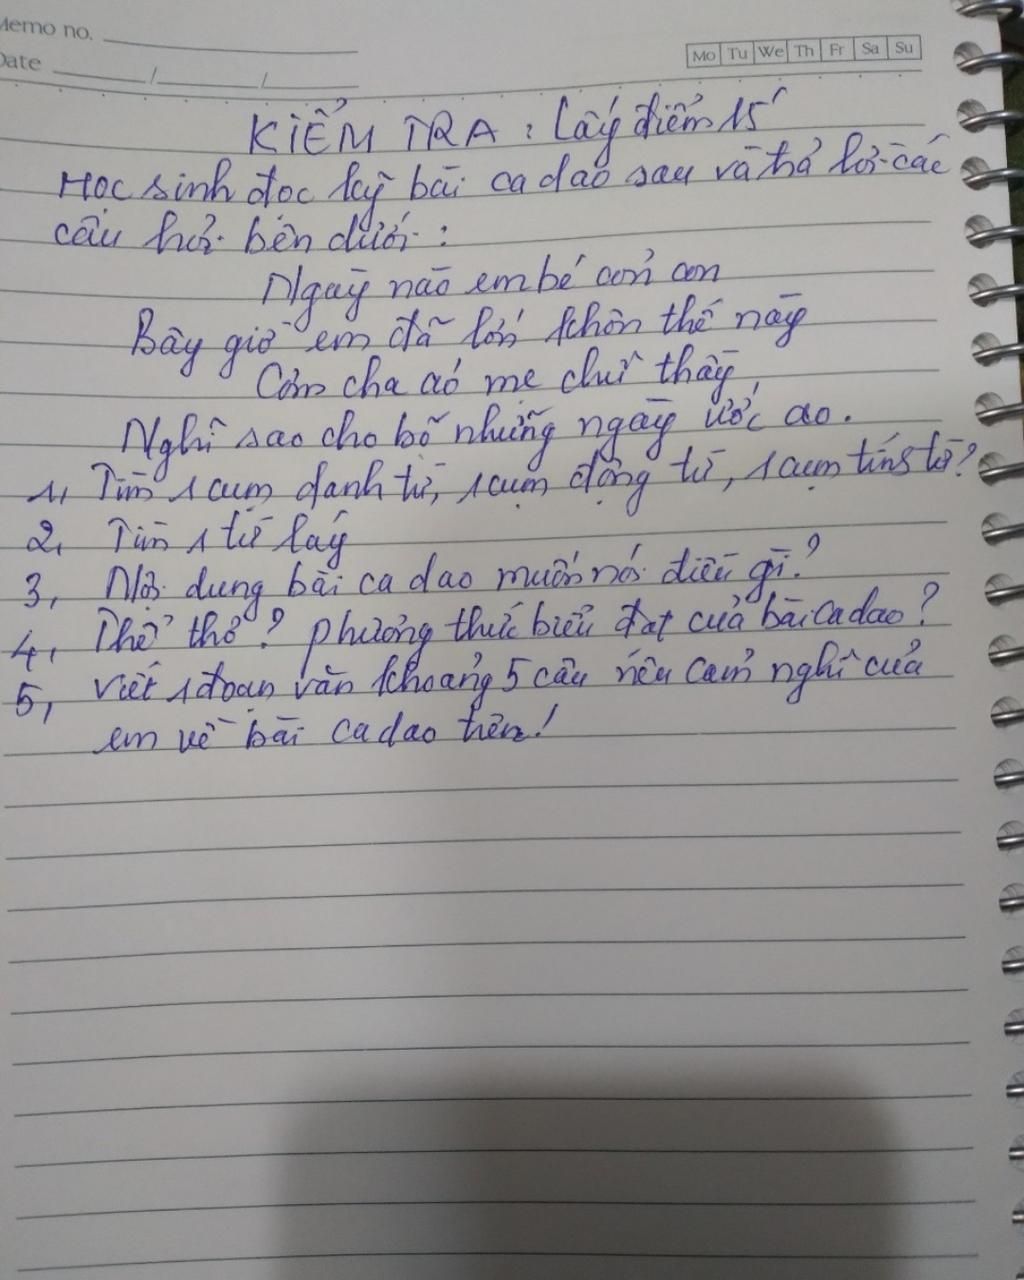 Memo no.
Mo Tu We Th Fr Sa Su
Date / /
KIỂM TRA : Lấy điểm 15'
Học sinh đọc kỹ bài ca dao sau và trả lời các
câu hỏi bên dưới :
Ngày nào em bé cỏn con
Bây giờ em đã lớn khôn thế này
Cơm cha áo mẹ chữ thầy
Nghĩ sao cho bõ những ngày ước ao.
1, Tìm 1 cụm danh từ, 1 cụm động từ, 1 cụm tính từ?
2, Tìm 1 từ láy
3, Nội dung bài ca dao muốn nói điều gì?
4, Thể thơ? phương thức biểu đạt của bài ca dao?
5, Viết 1 đoạn văn khoảng 5 câu nêu cảm nghĩ của
em về bài ca dao trên!